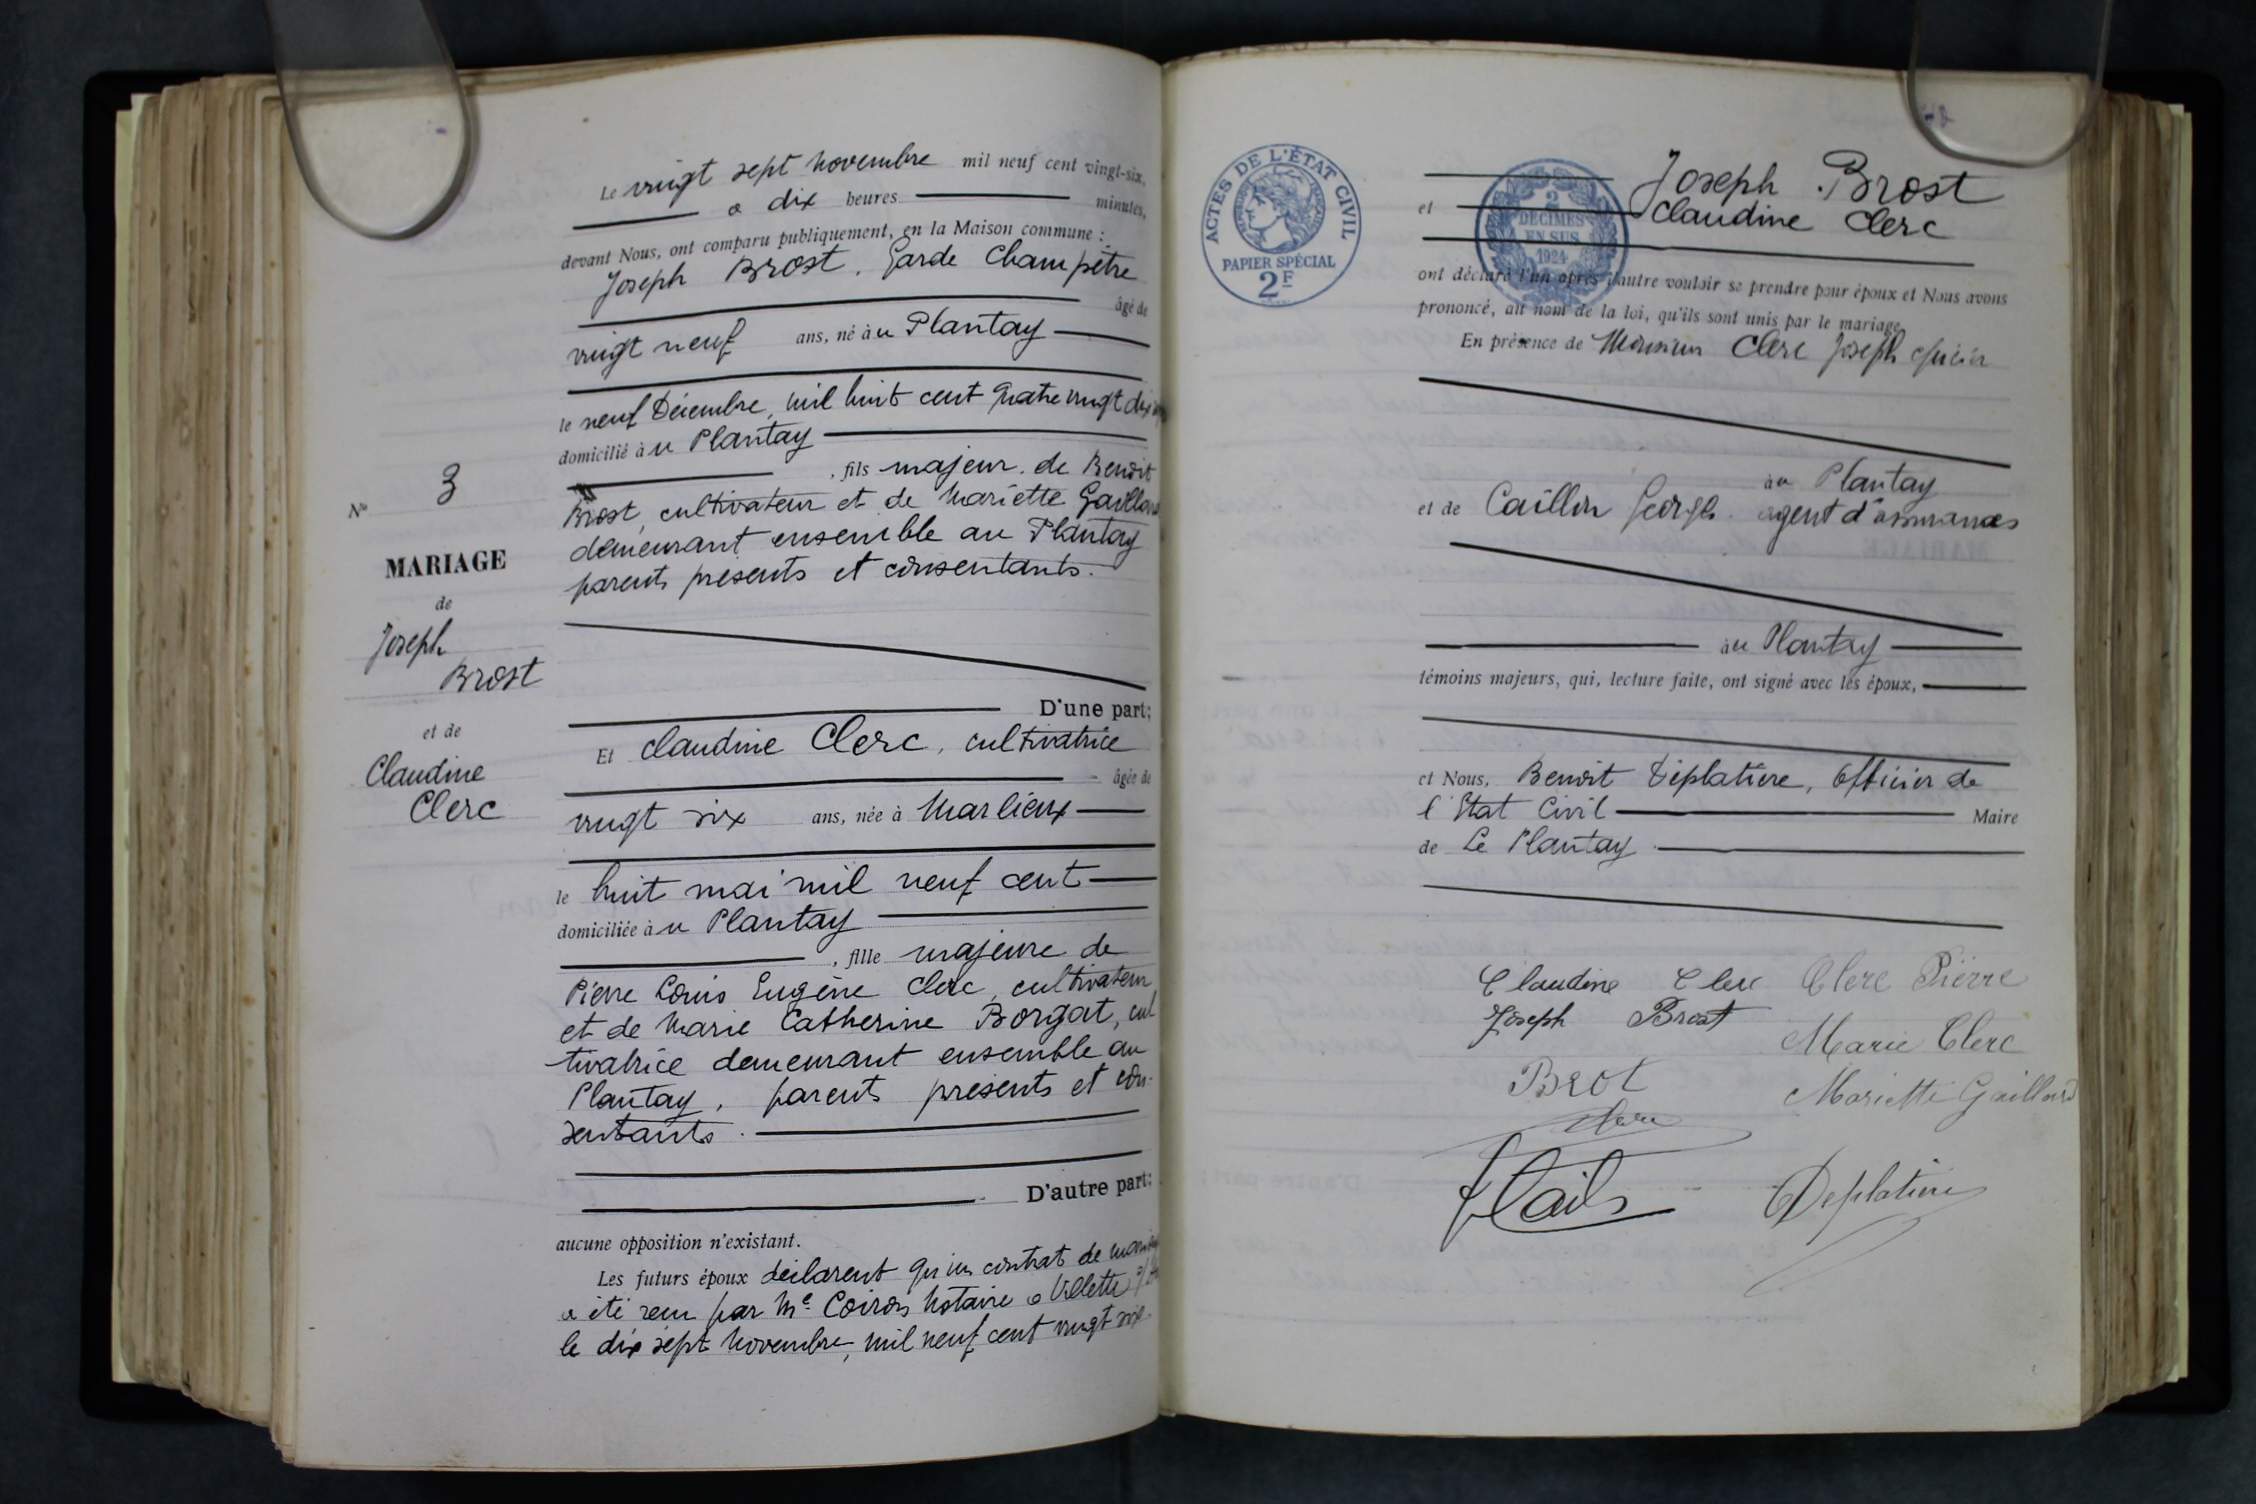 Le vingt sept novembre mil neuf cent vingt-six,
a dix heures minutes,
devant Nous, ont comparu publiquement, en la Maison commune :
Joseph Brost, Garde Champêtre
âgé de
vingt neuf ans, né à u Plantay
le neuf Décembre, mil huit cent quatre vingt dix
domicilié à u Plantay
, fils majeur de Benoit
Brost, cultivateur et de Mariette Gaillard
demeurant ensemble au Plantay
parents présents et consentants.
N° 3
MARIAGE
de
Joseph
Brost
et de
Claudine
Clerc
D'une part;
Et Claudine Clerc, cultivatrice
âgée de
vingt six ans, née à Marlieux
le huit mai mil neuf cent
domiciliée à u Plantay
, fille majeure de
Pierre Louis Eugène Clerc, cultivateur
et de Marie Catherine Borgat, cul
tivatrice demeurant ensemble au
Plantay, parents présents et con-
sentants.
D'autre part;
aucune opposition n'existant.
Les futurs époux déclarent qu'un contrat de
a été reçu par Me Coiron Notaire a Villette
le dix sept novembre, mil neuf cent vingt six.
ACTES DE L'ÉTAT CIVIL
RÉPUBLIQUE FRANÇAISE
PAPIER SPÉCIAL
2F
2
DÉCIMES
EN SUS
1924
Joseph Brost
et Claudine Clerc
ont déclaré l'un après l'autre vouloir se prendre pour époux et Nous avons
prononcé, au nom de la loi, qu'ils sont unis par le mariage.
En présence de Monsieur Clerc Joseph épicier
au Plantay
et de Caillon Georges agent d'assurances
à u Plantay
témoins majeurs, qui, lecture faite, ont signé avec les époux,
et Nous, Benoit Déplatière, Officier de
l'Etat Civil Maire
de Le Plantay
Claudine Clerc Clerc Pierre
Joseph Brost
Marie Clerc
Brot
Mariette Gaillard
Clerc
Deplatière